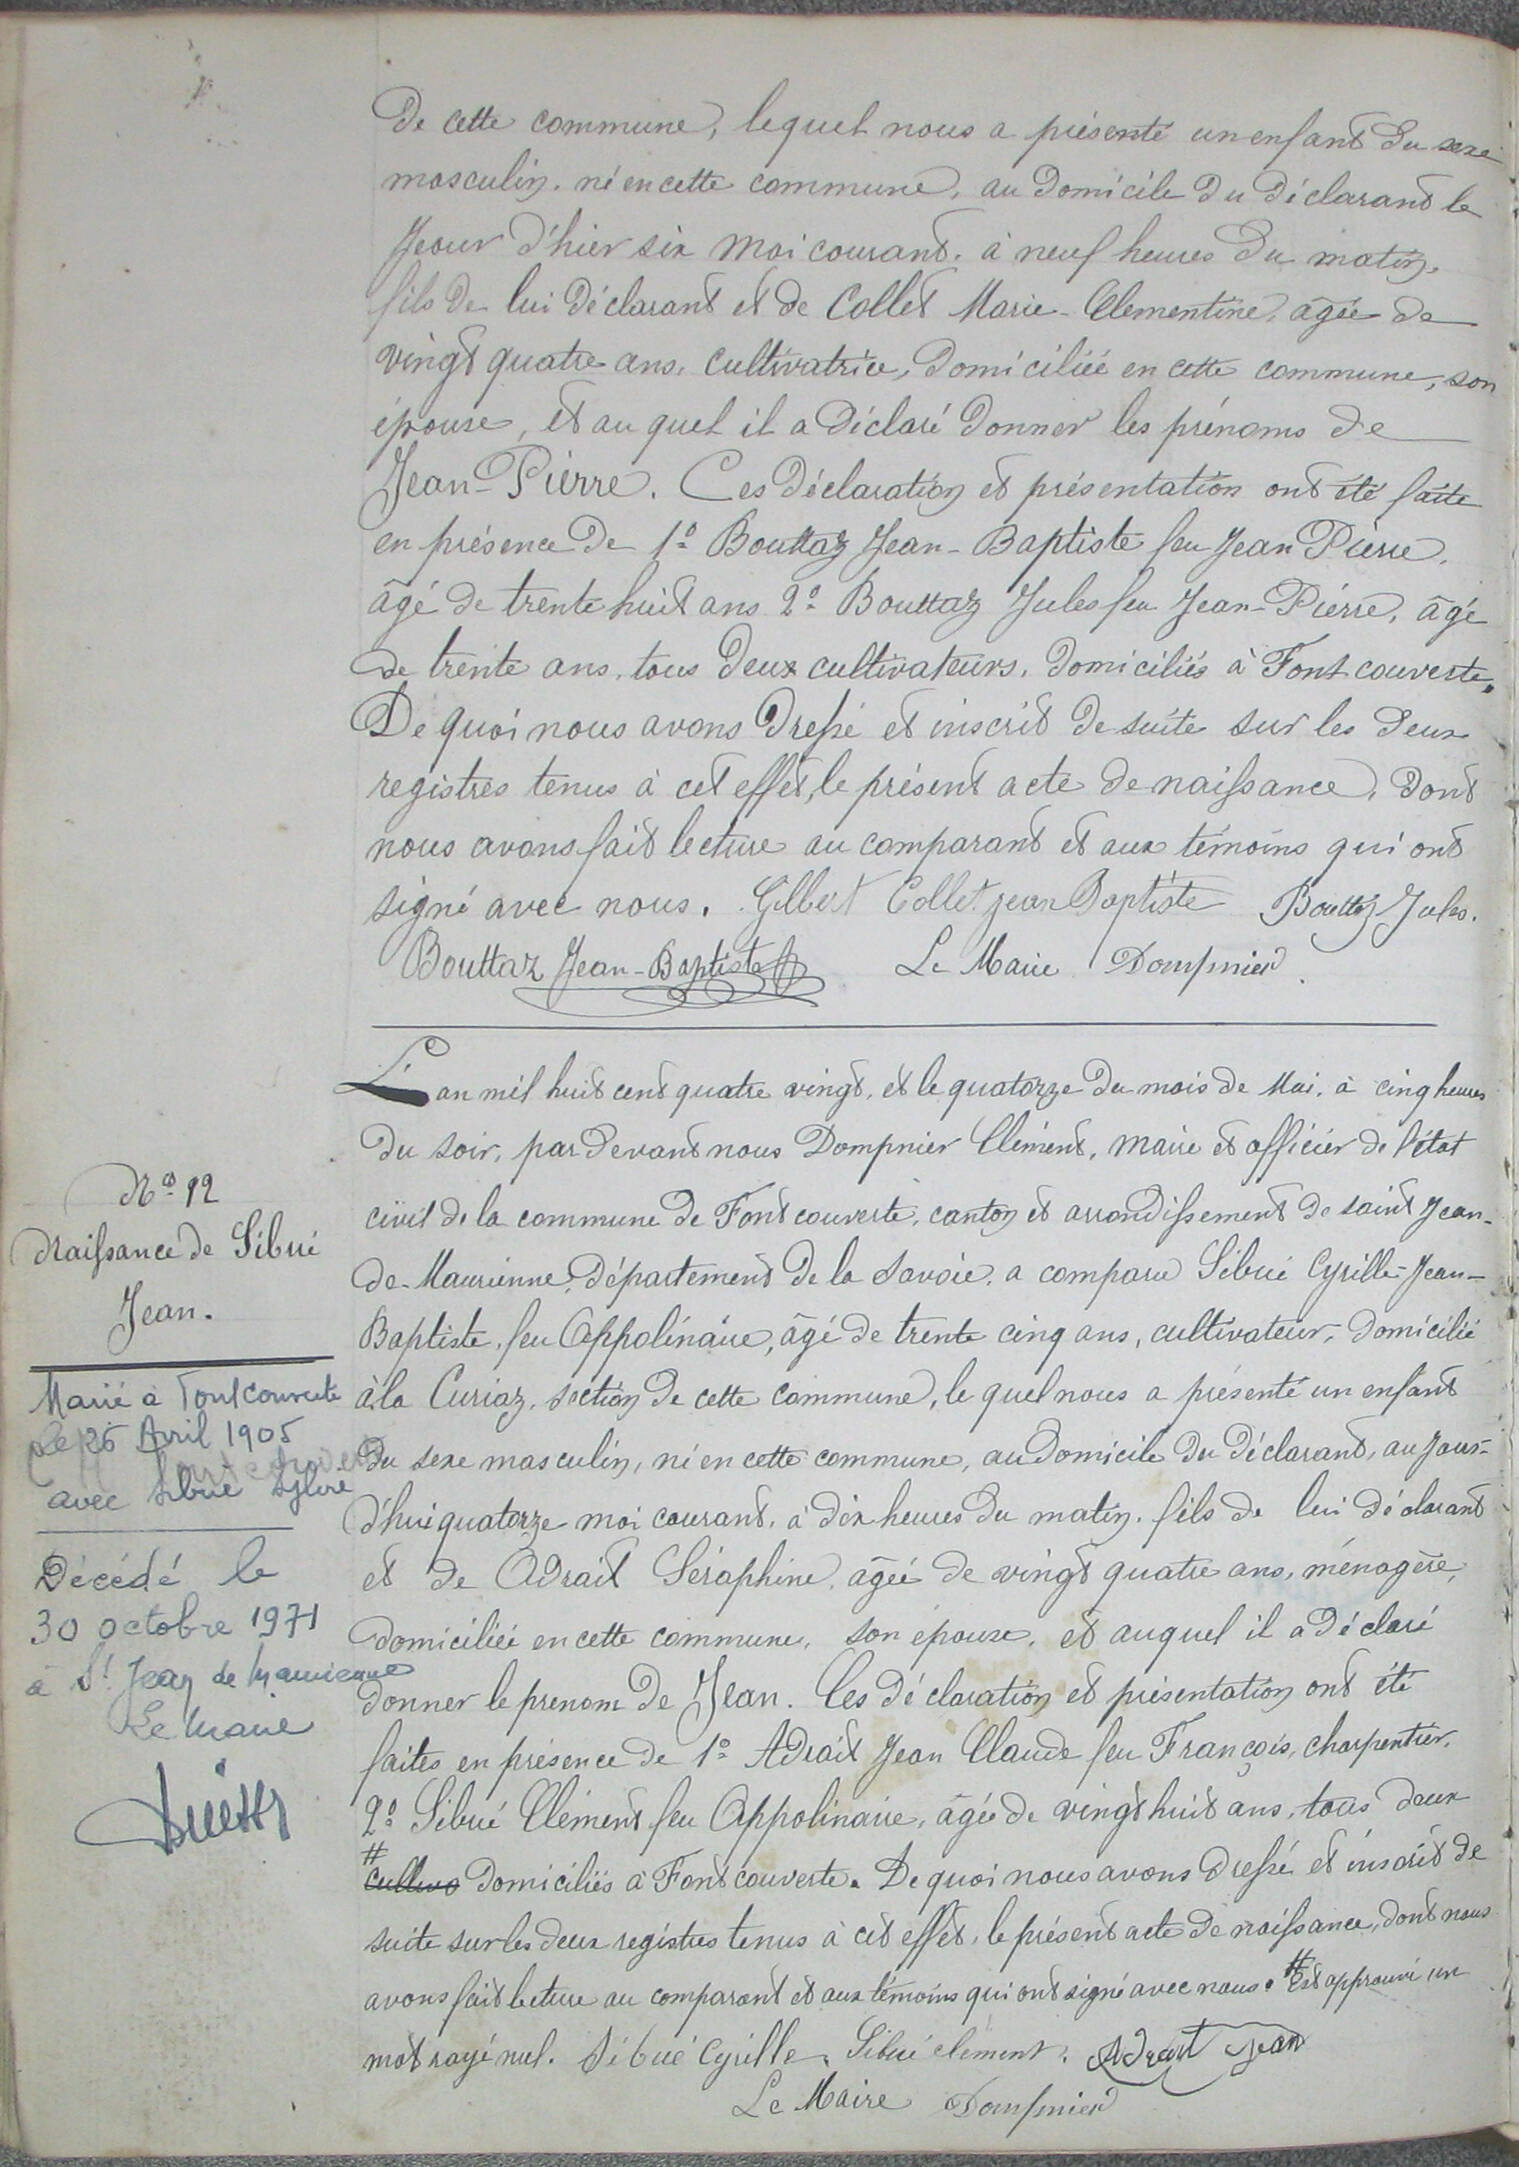 de cette commune, lequel nous a présenté un enfant du sexe
masculin, né en cette commune, au domicile du déclarant le
Jour d'hier six moi courant, à neuf heures du matin,
fils de lui déclarant et de Collet Marie-Clementine, agée de
vingt quatre ans, cultivatrice, domiciliée en cette commune, son
épouse, et au quel il a déclaré donner les prénoms de
Jean-Pierre. Ces déclaration et présentation ont été faite
en présence de 1º Bouttaz Jean-Baptiste feu Jean Pierre,
âgé de trente huit ans 2º Bouttaz Jules feu Jean-Pierre, âgé
de trente ans, tous deux cultivateurs, domiciliés à Fontcouverte.
De quoi nous avons dressé et inscrit de suite sur les deux
registres tenus à cet effet, le présent acte de naissance, dont
nous avons fait lecture au comparant et aux témoins qui ont
signé avec nous. Gilbert Collet jean Baptiste Bouttaz Jules.
Bouttaz Jean-Baptiste Le Maire Dompnier
L'an mil huit cent quatre vingt, et le quatorze du mois de Mai, à cinq heures
du soir, par devant nous Dompnier Clément, maire et officier de l'état
civil de la commune de Fontcouverte, canton et arrondissement de saint Jean-
de-Maurienne, département de la Savoie, a comparu Sibué Cyrille-Jean-
Baptiste, feu Appolinaire, âgé de trente cinq ans, cultivateur, domicilié
à la Curiaz, section de cette commune, le quel nous a présenté un enfant
du sexe masculin, né en cette commune, au domicile du déclarant, au jour-
d'hui quatorze moi courant, à dix heures du matin, fils de lui déclarant
et de Adrait Séraphine, agée de vingt quatre ans, ménagère,
domiciliée en cette commune, son épouse, et auquel il a déclaré
donner le prenom de Jean. Ces déclaration et présentation ont été
faites en présence de 1º Adrait Jean Claude feu François, charpentier,
2º Sibué Clément feu Appolinaire, âgée de vingt huit ans, tous deux
# cultiva domiciliés à Fontcouverte. De quoi nous avons dressé et inscrit de
suite sur les deux registres tenus à cet effet, le présent acte de naissance, dont nous
avons fait lecture au comparant et aux témoins qui ont signé avec nous. # Est approuvé un
mot rayé nul. Sibué Cyrille. Sibué clément. Adrait Jean
Le Maire Dompnier
Nº 12
Naissance de Sibué
Jean.
Marié à Fontcouverte
le 26 Avril 1905
avec Sibué Sylvie
Décédé le
30 octobre 1971
à St Jean de Maurienne
Le Maire